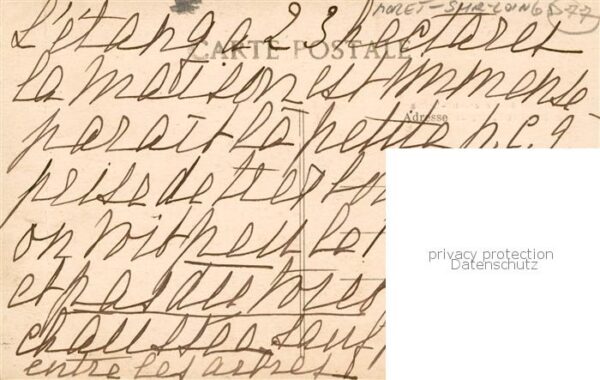 MORET-SUR-LOING D77
CARTE POSTALE
L'étang a 23 hectares
La maison est immense
Adresse
paraît la petite p.c.q
prise de très
on voit peu le
et pas du tout
chaussée sauf
entre les arbres
privacy protection
Datenschutz